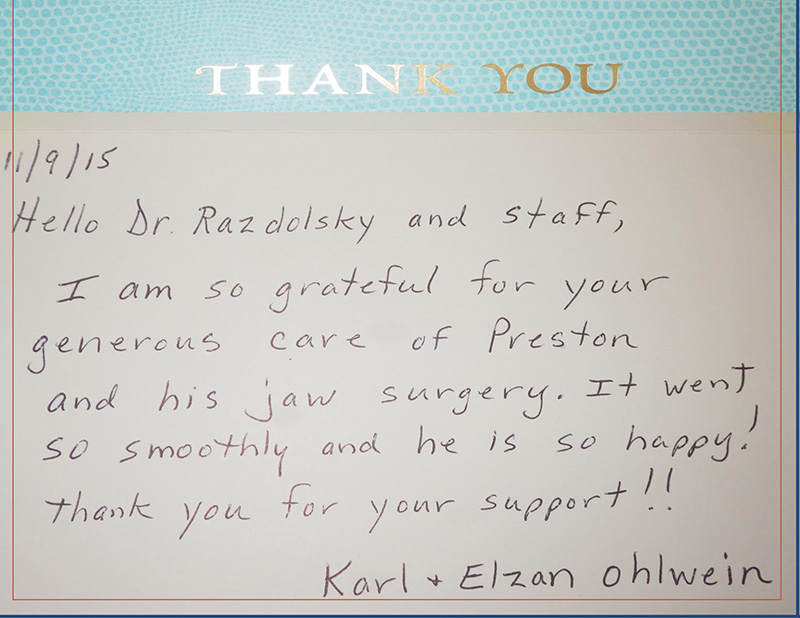 THANK YOU
11/9/15
Hello Dr. Razdolsky and staff,
I am so grateful for your
generous care of Preston
and his jaw surgery. It went
so smoothly and he is so happy!
thank you for your support!!
Karl + Elzan Ohlwein